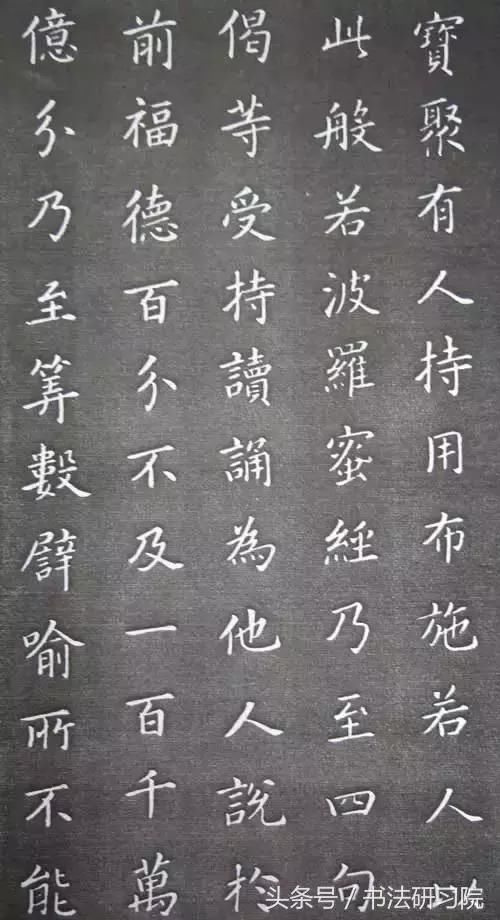 寶聚有人持用布施若人以
此般若波羅蜜經乃至四句
偈等受持讀誦為他人說於
前福德百分不及一百千萬
億分乃至筭數譬喻所不能
头条号/书法研习院